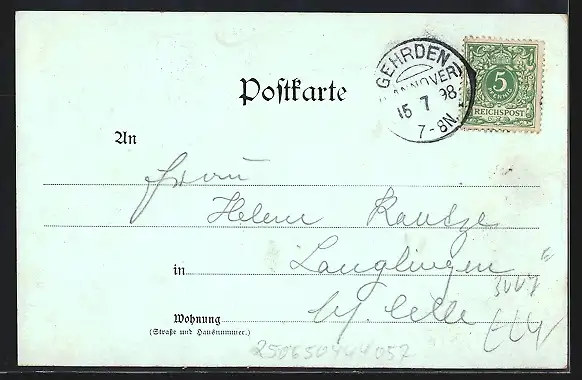 GEHRDEN
(HANNOVER)
15 7 98
7-8N.
5
REICHSPOST
Postkarte
An
Frau
Helene
in Langlingen
Wohnung bei Celle
(Straße und Hausnummer.)
250650444052